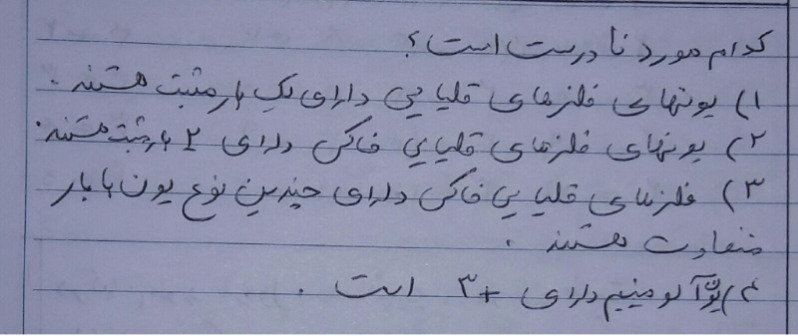 کدام مورد نادرست است؟
۱) یونهای فلزهای قلیایی دارای یک بار مثبت هستند.
۲) یونهای فلزهای قلیایی خاکی دارای ۲ بار مثبت هستند.
۳) فلزهای قلیایی خاکی دارای چندین نوع یون با بار
متفاوت هستند.
۴) یون آلومینیم دارای +۳ است.